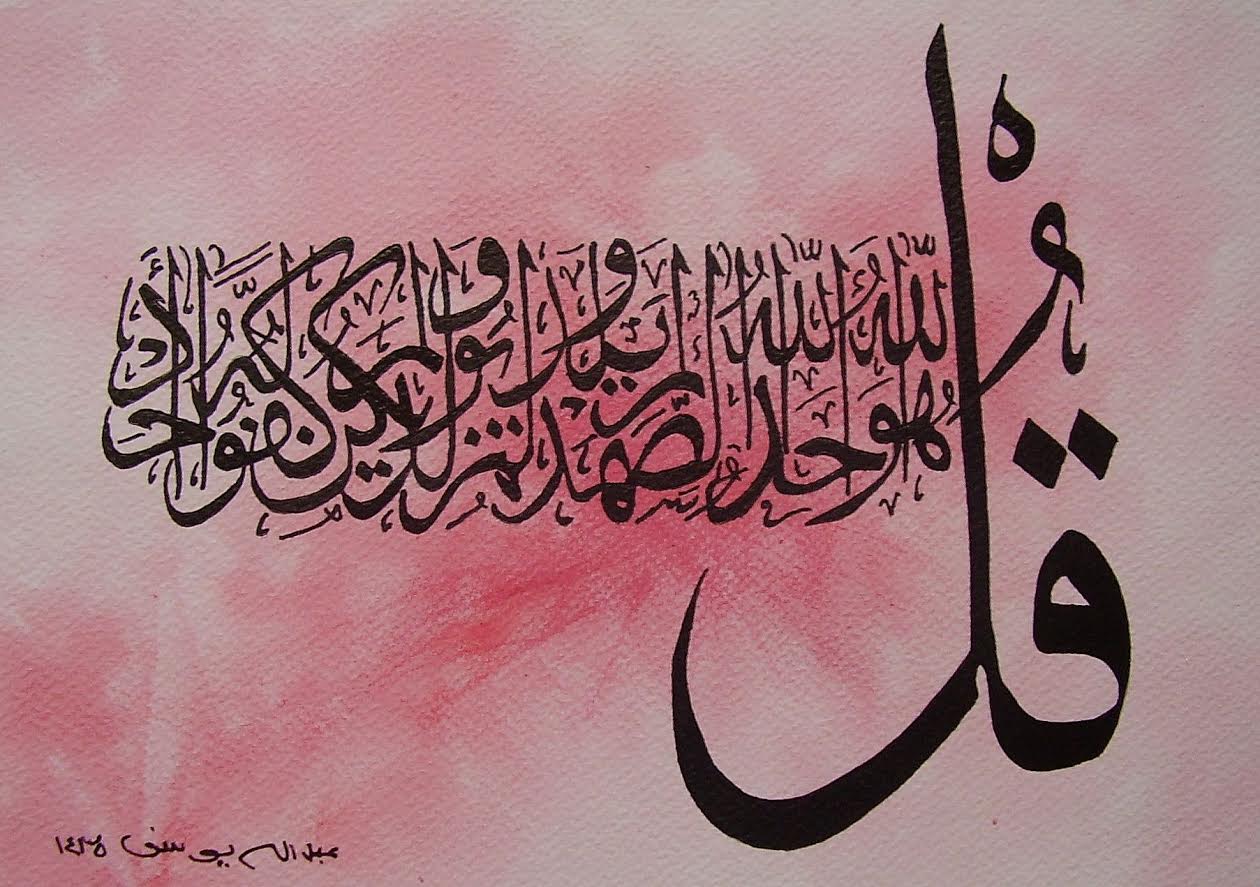 قل هو الله أحد الله الصمد لم يلد ولم يولد ولم يكن له كفوا أحد
عبدالله يوسف